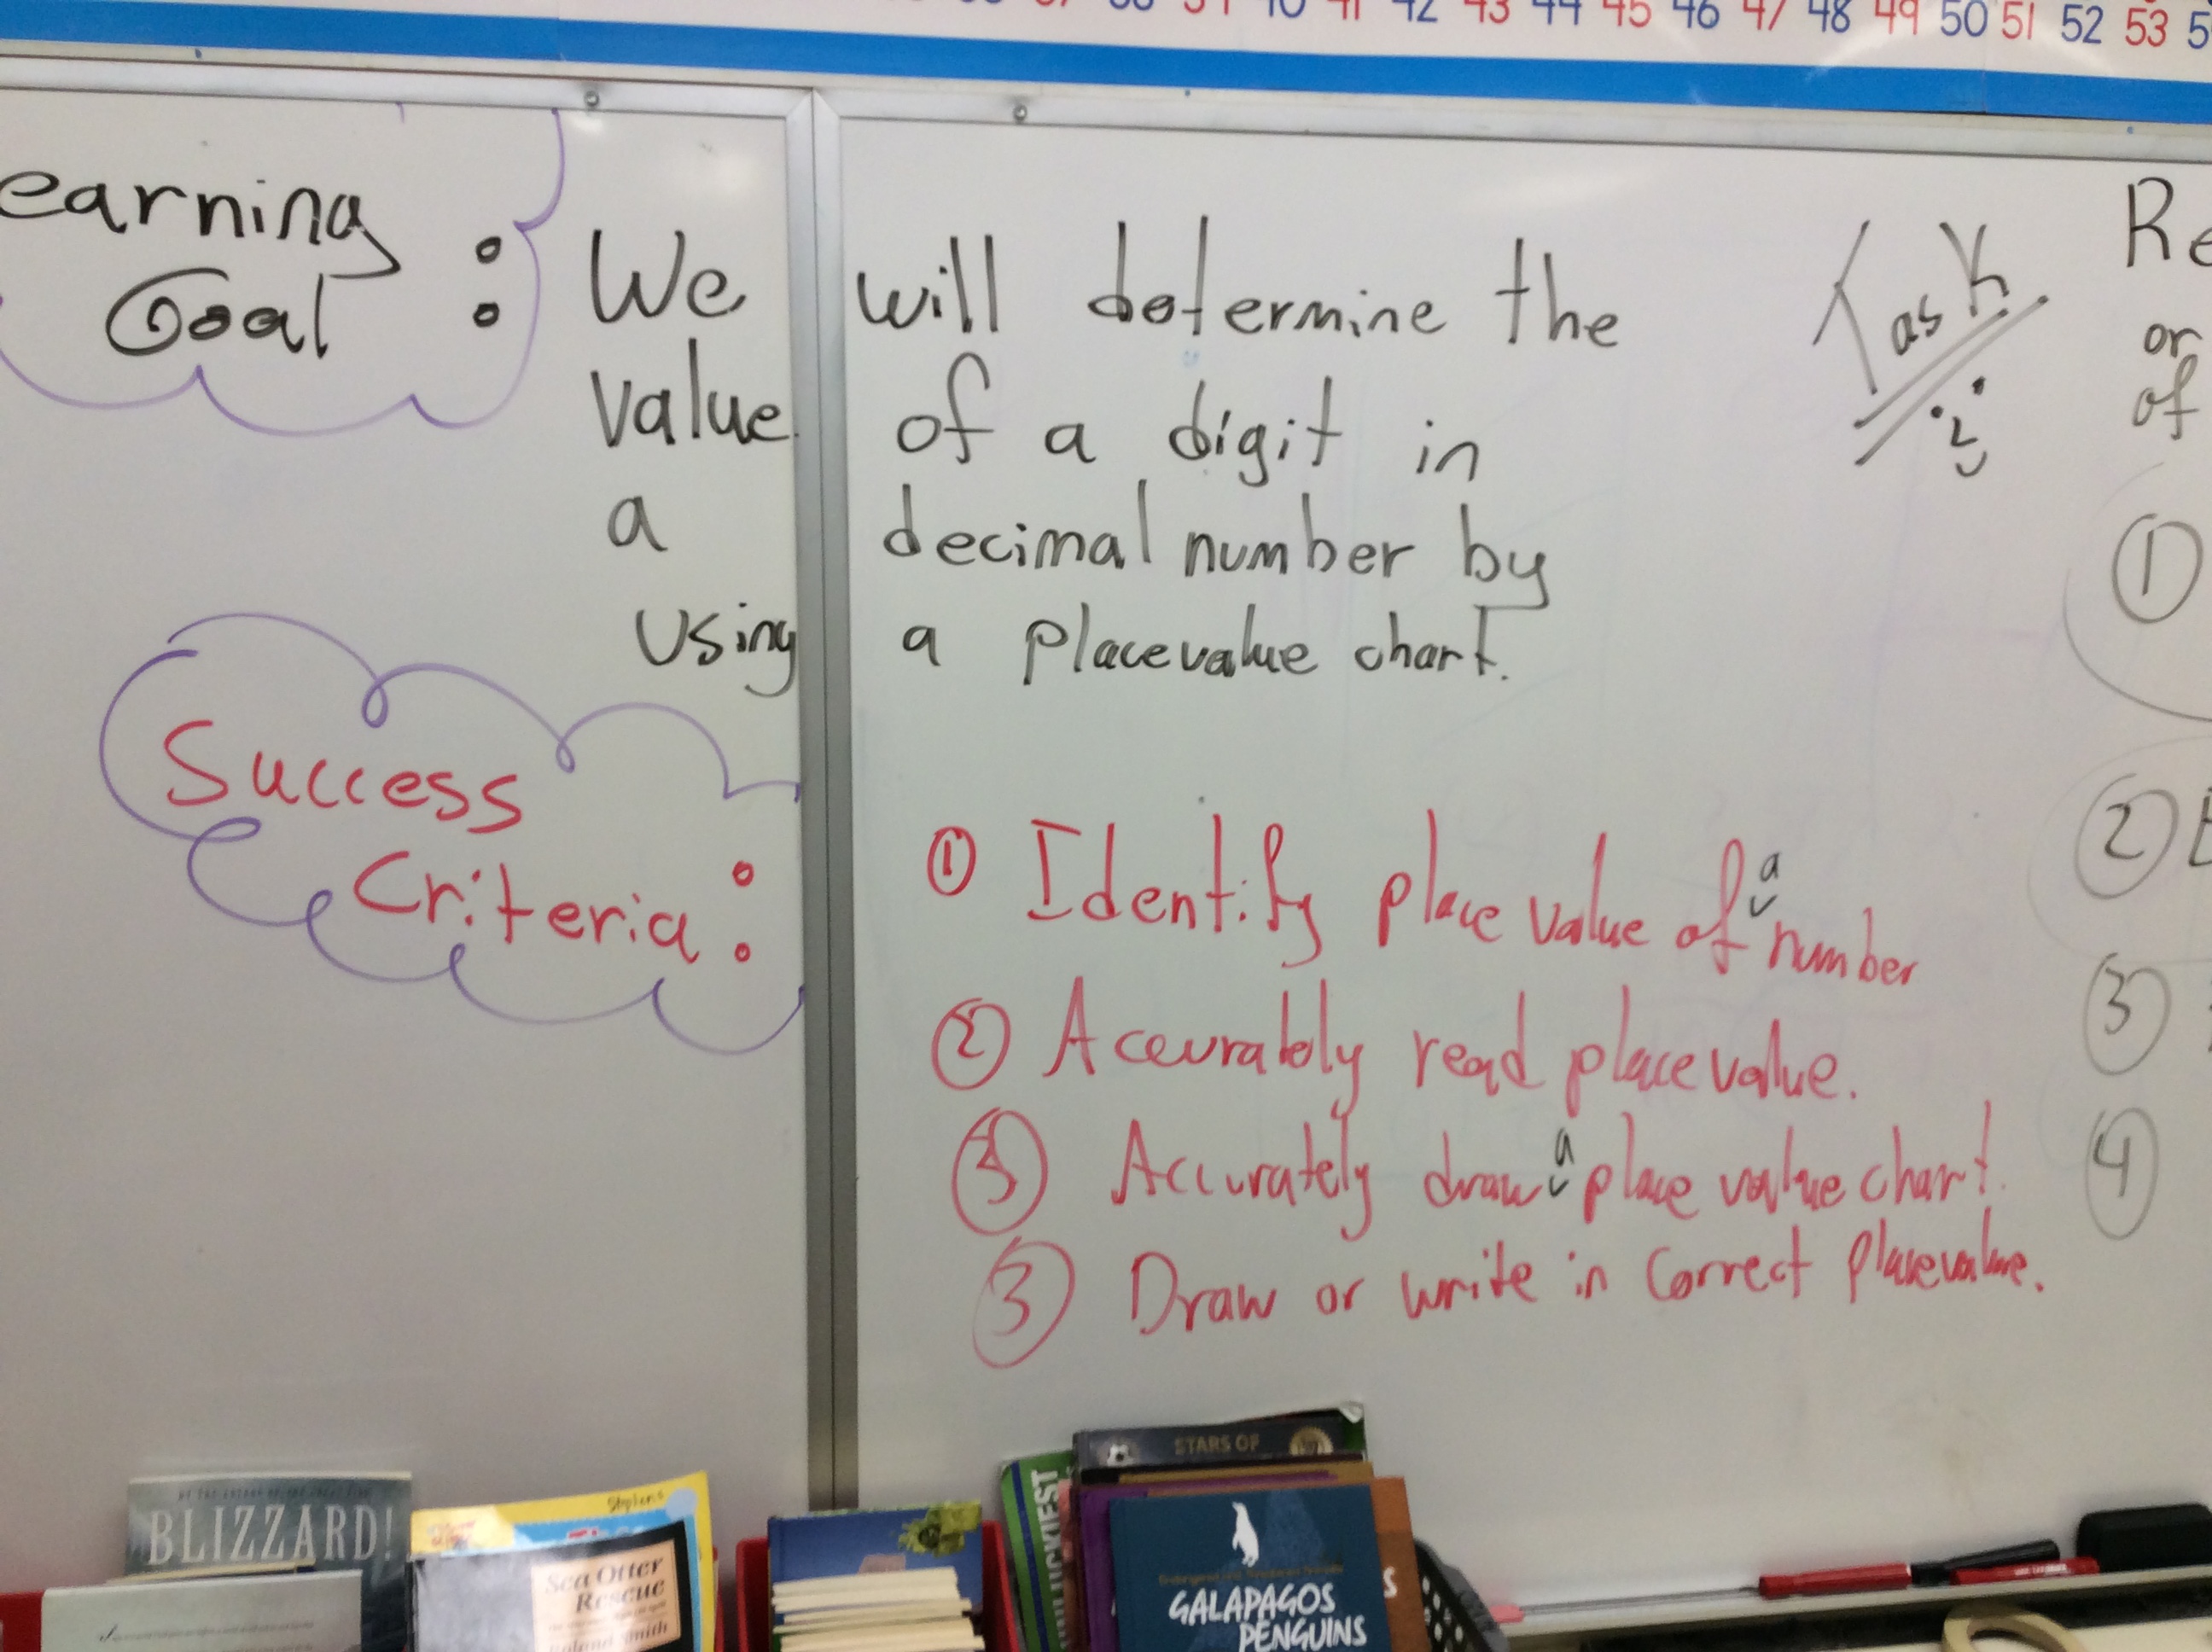 40 41 42 43 44 45 46 47 48 49 50 51 52 53 5
earning
Goal :
We will determine the
value of a digit in
a decimal number by
using a placevalue chart.
Task
Re
or
of
①
②
③
④
Success
Criteria :
① Identify place value of a number
② Accurately read place value.
③ Accurately draw a place value chart.
③ Draw or write in correct placevalue.
BLIZZARD!
Stephens
Sea Otter
Rescue
Roland Smith
STARS OF
LUCKIEST
GALAPAGOS
PENGUINS
S